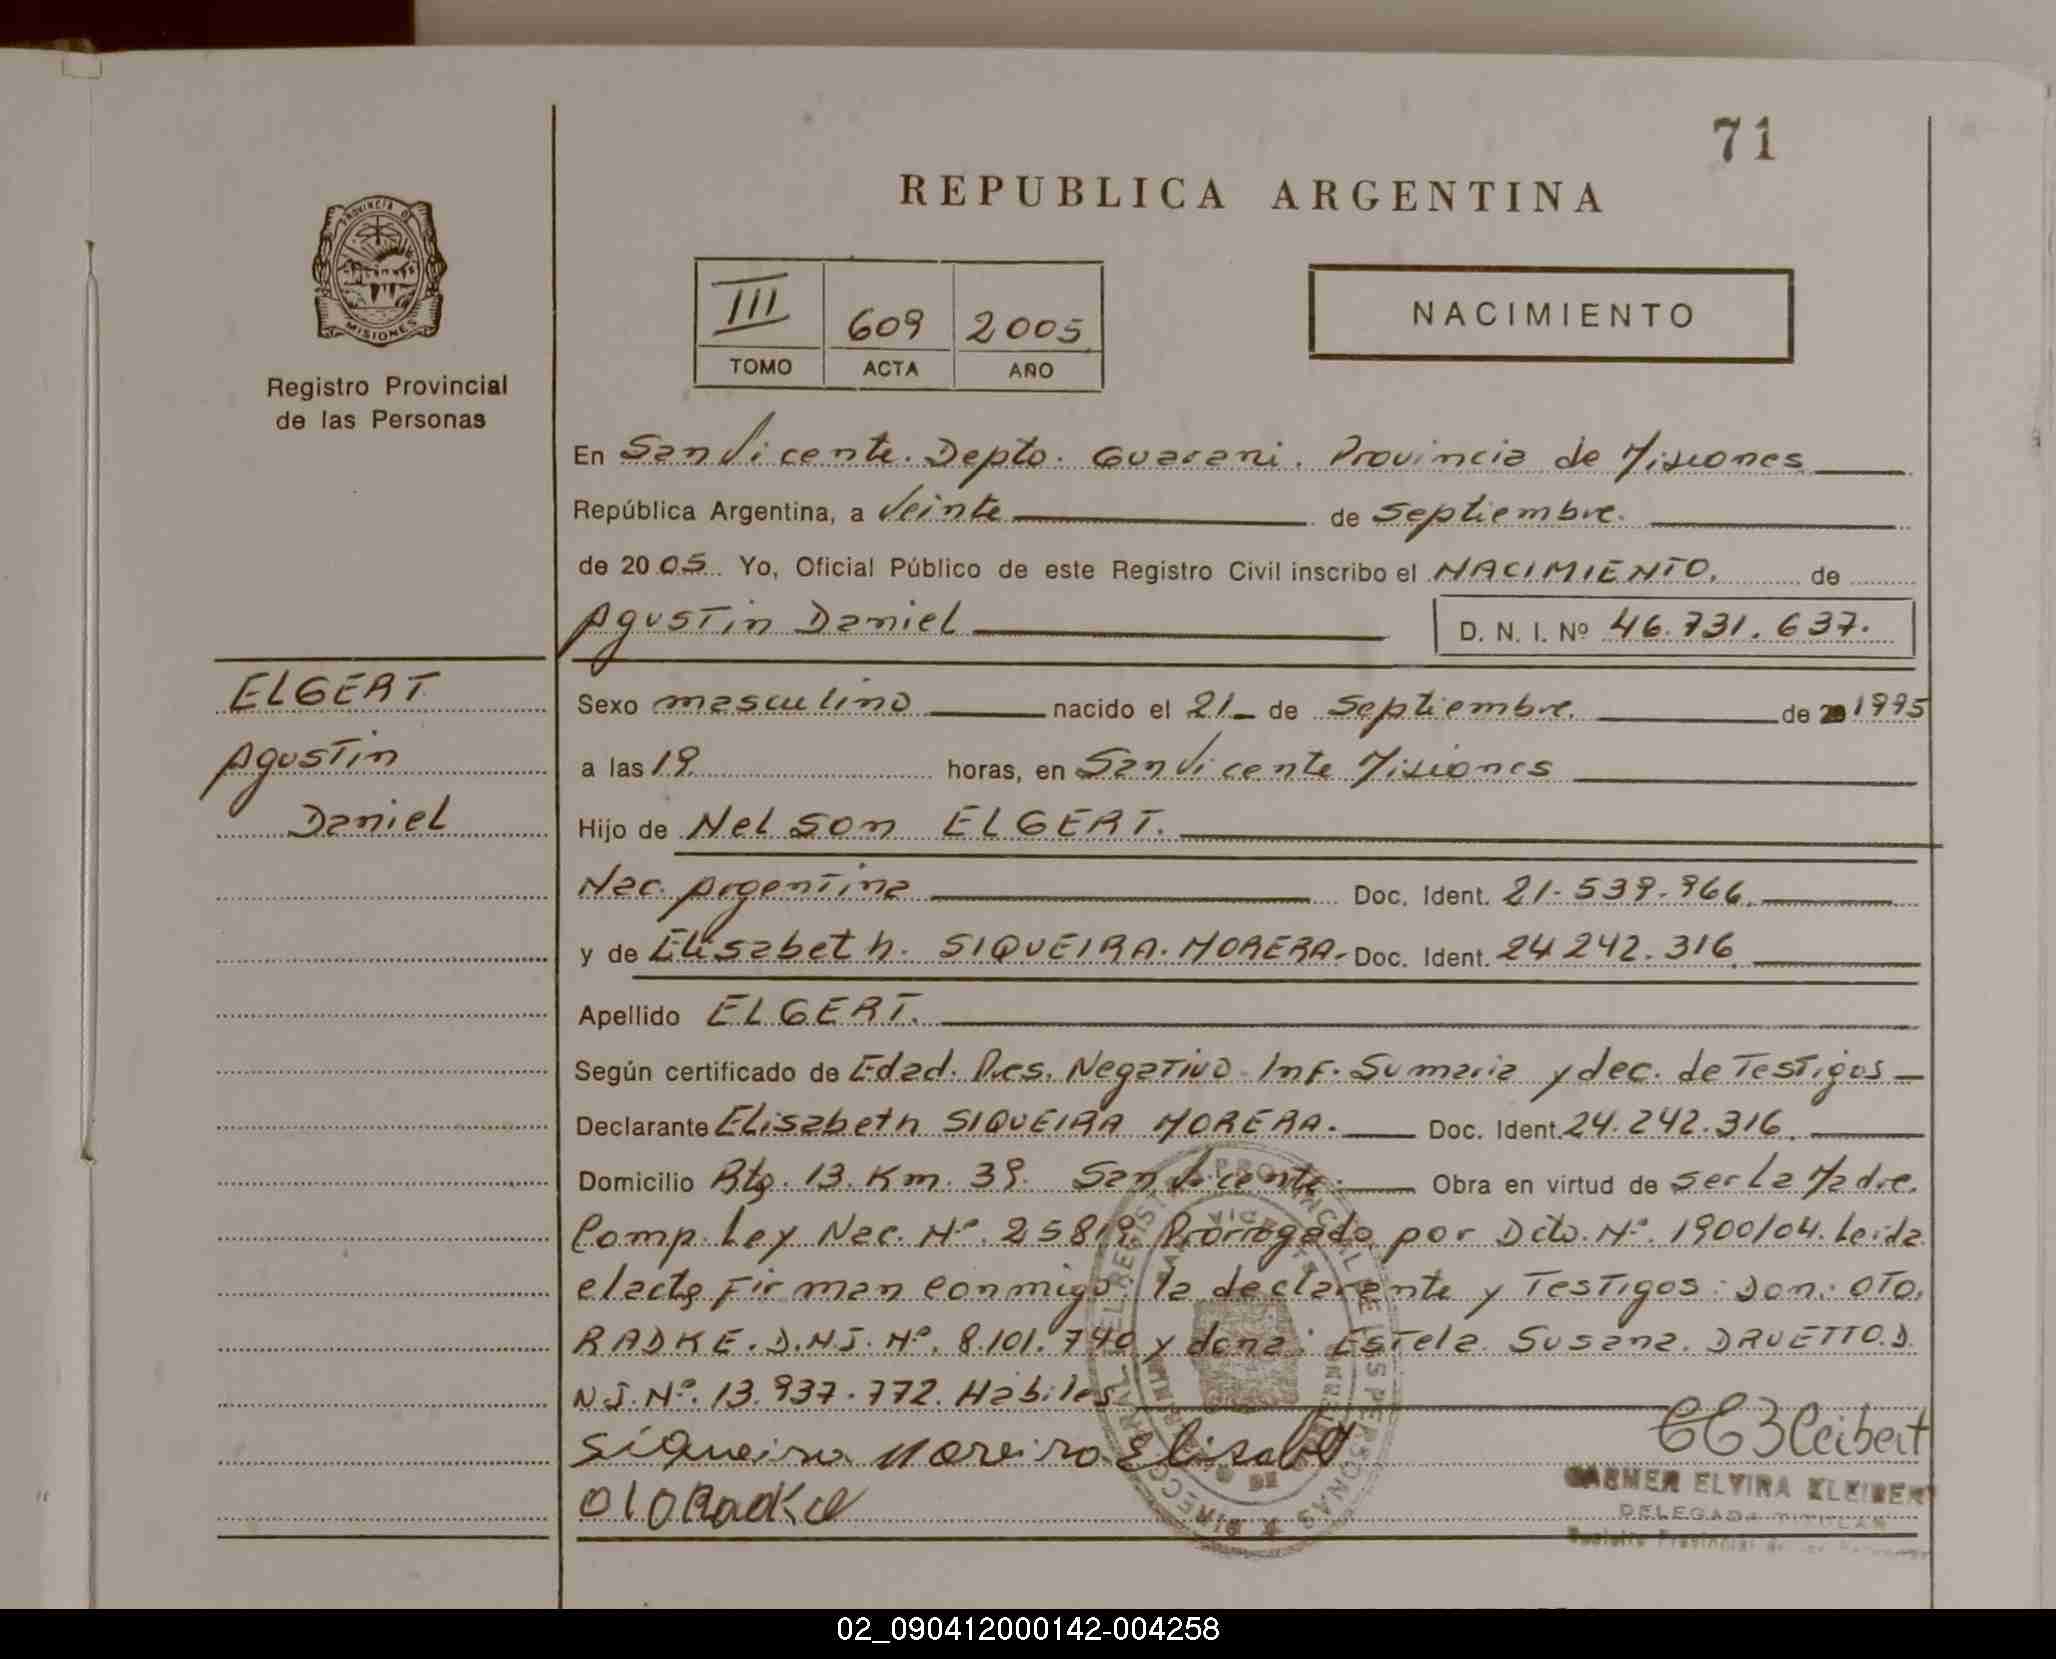 71
REPUBLICA ARGENTINA
PROVINCIA DE
MISIONES
Registro Provincial
de las Personas
III 609 2005
TOMO ACTA AÑO
NACIMIENTO
En San Vicente. Depto. Guarani. Provincia de Misiones
República Argentina, a Veinte de Septiembre.
de 2005 Yo, Oficial Público de este Registro Civil inscribo el NACIMIENTO. de
Agustin Daniel D. N. I. Nº 46.731.637.
ELGERT
Agustin
Daniel
Sexo masculino nacido el 21 de Septiembre. de 1995
a las 19 horas, en San Vicente Misiones
Hijo de Nelson ELGERT.
Nac. Argentina Doc. Ident. 21.539.966.
y de Elisabeth. SIQUEIRA. MORERA. Doc. Ident. 24 242.316
Apellido ELGERT.
Según certificado de Edad. Pres. Negativo. Inf. Sumaria y dec. de Testigos
Declarante Elisabeth SIQUEIRA MORERA. Doc. Ident. 24.242.316.
Domicilio Rta. 13. Km. 39. San Vicente. Obra en virtud de ser La Madre.
Comp. Ley Nac. Nº. 25819. Prorrogado por Dcto. Nº. 1900/04. Leida
el acta Firman conmigo. la declarante y Testigos: Don: OTO.
RADKE. D.N.I. Nº. 8.101.740 y dona: Estela. Susana. DRUETTO. D.
N.I. Nº. 13.937.772. Habiles
Siqueira Moreira Elisabet
Oto Radke
CARMEN ELVIRA KLEIBERT
DELEGADA TITULAR
02_090412000142-004258